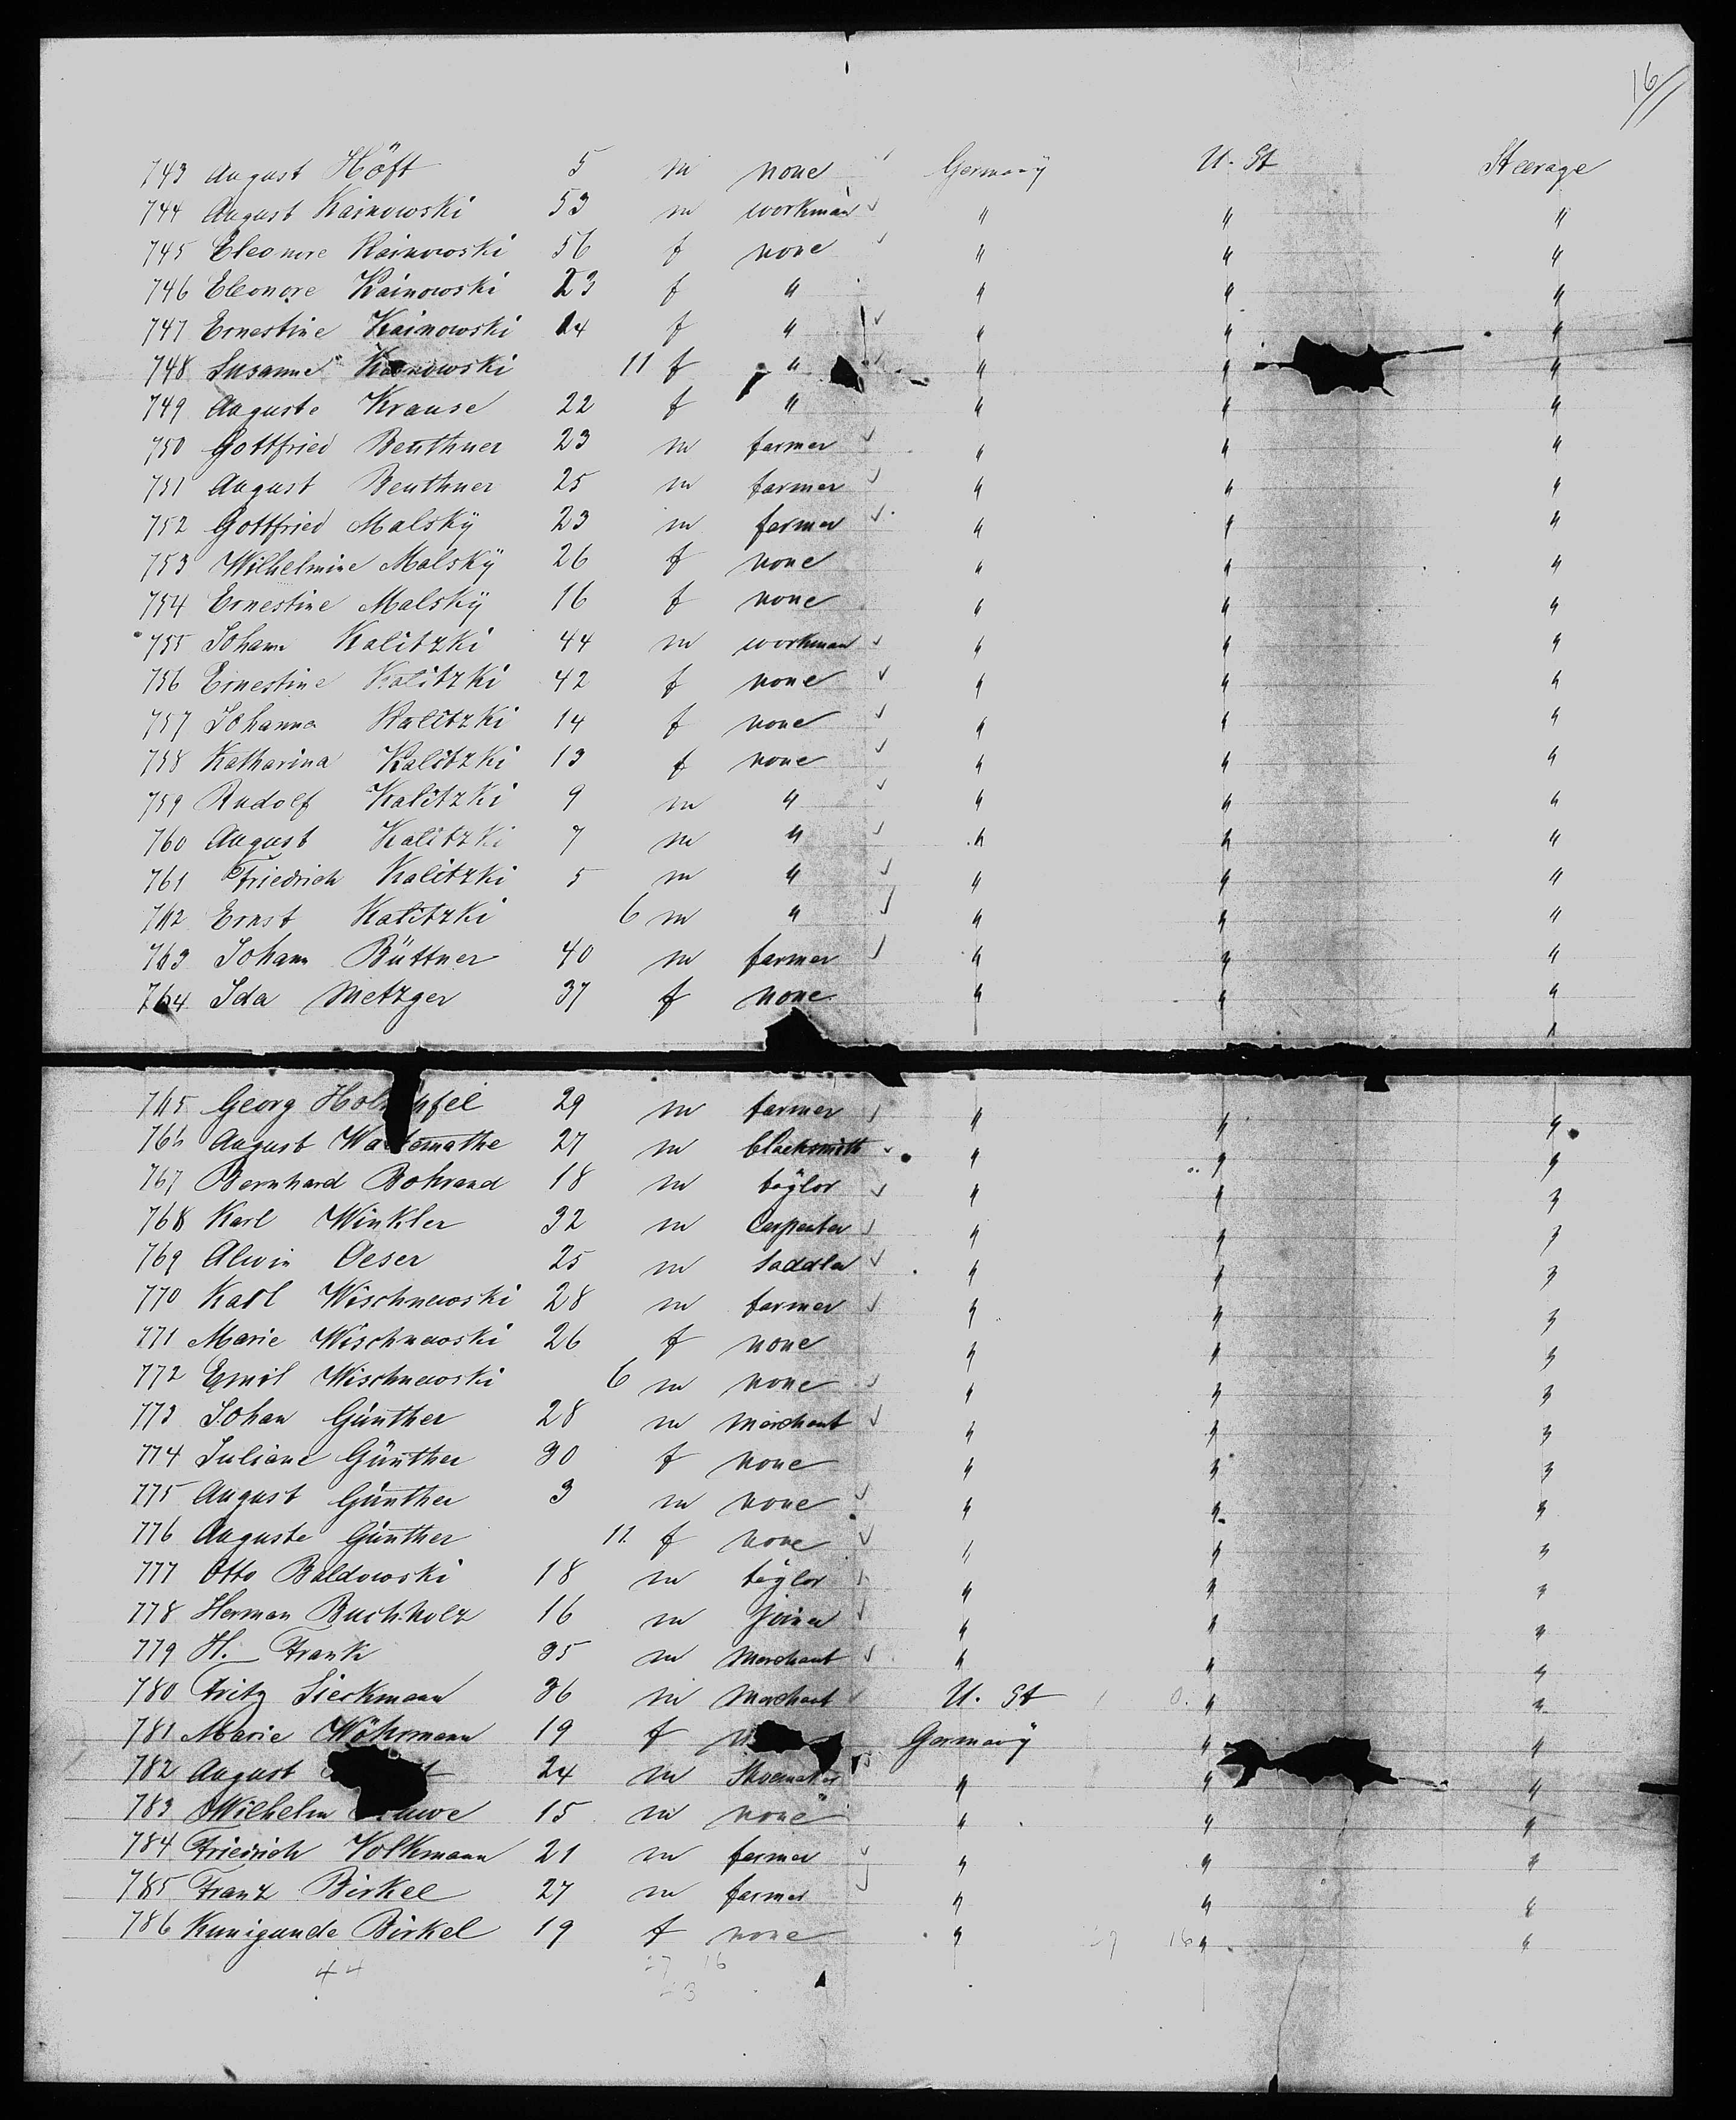 16
743 August Höft 5 m none Germanÿ U. St Steerage
744 August Kainowski 53 m workman " " "
745 Eleonore Kainowski 56 f none " " "
746 Eleonore Kainowski 23 f " " " "
747 Ernestine Kainowski 14 f " " " "
748 Susanne Kainowski 11 f " " " "
749 Auguste Krause 22 f " " " "
750 Gottfried Benthner 23 m farmer " " "
751 August Benthner 25 m farmer " " "
752 Gottfried Malskÿ 23 m farmer " " "
753 Wilhelmine Malskÿ 26 f none " " "
754 Ernestine Malskÿ 16 f none " " "
755 Johann Kalitzki 44 m workman " " "
756 Ernestine Kalitzki 42 f none " " "
757 Johanna Kalitzki 14 f none " " "
758 Katharina Kalitzki 13 f none " " "
759 Rudolf Kalitzki 9 m " " " "
760 August Kalitzki 7 m " " " "
761 Friedrich Kalitzki 5 m " " " "
762 Ernst Kalitzki 6 m " " " "
763 Johann Büttner 40 m farmer " " "
764 Ida Metzger 37 f none " " "
765 Georg 29 m farmer " " "
766 August 27 m blacksmith " " "
767 Bernhard Bohrand 18 m taÿlor " " "
768 Karl Winkler 32 m Carpenter " " "
769 Alwin Oeser 25 m Saddler " " "
770 Karl Wischnewski 28 m farmer " " "
771 Marie Wischnewski 26 f none " " "
772 Emil Wischnewski 6 m none " " "
773 Johan Günther 28 m merchant " " "
774 Juliane Günther 30 f none " " "
775 August Günther 3 m none " " "
776 Auguste Günther 11 f none " " "
777 Otto Baldowski 18 m taÿlor " " "
778 Herman Buchholz 16 m joiner " " "
779 H. Frank 35 m Merchant " " "
780 Fritz Sieckmann 36 m Merchant U. St " "
781 Marie Wöhrmann 19 f Germanÿ " "
782 August 24 m Shoemaker " " "
783 Wilhelm 15 m none " " "
784 Friedrich Volkmann 21 m farmer " " "
785 Franz Birkel 27 m farmer " " "
786 Kunigunde Birkel 19 f none " " "
44 16